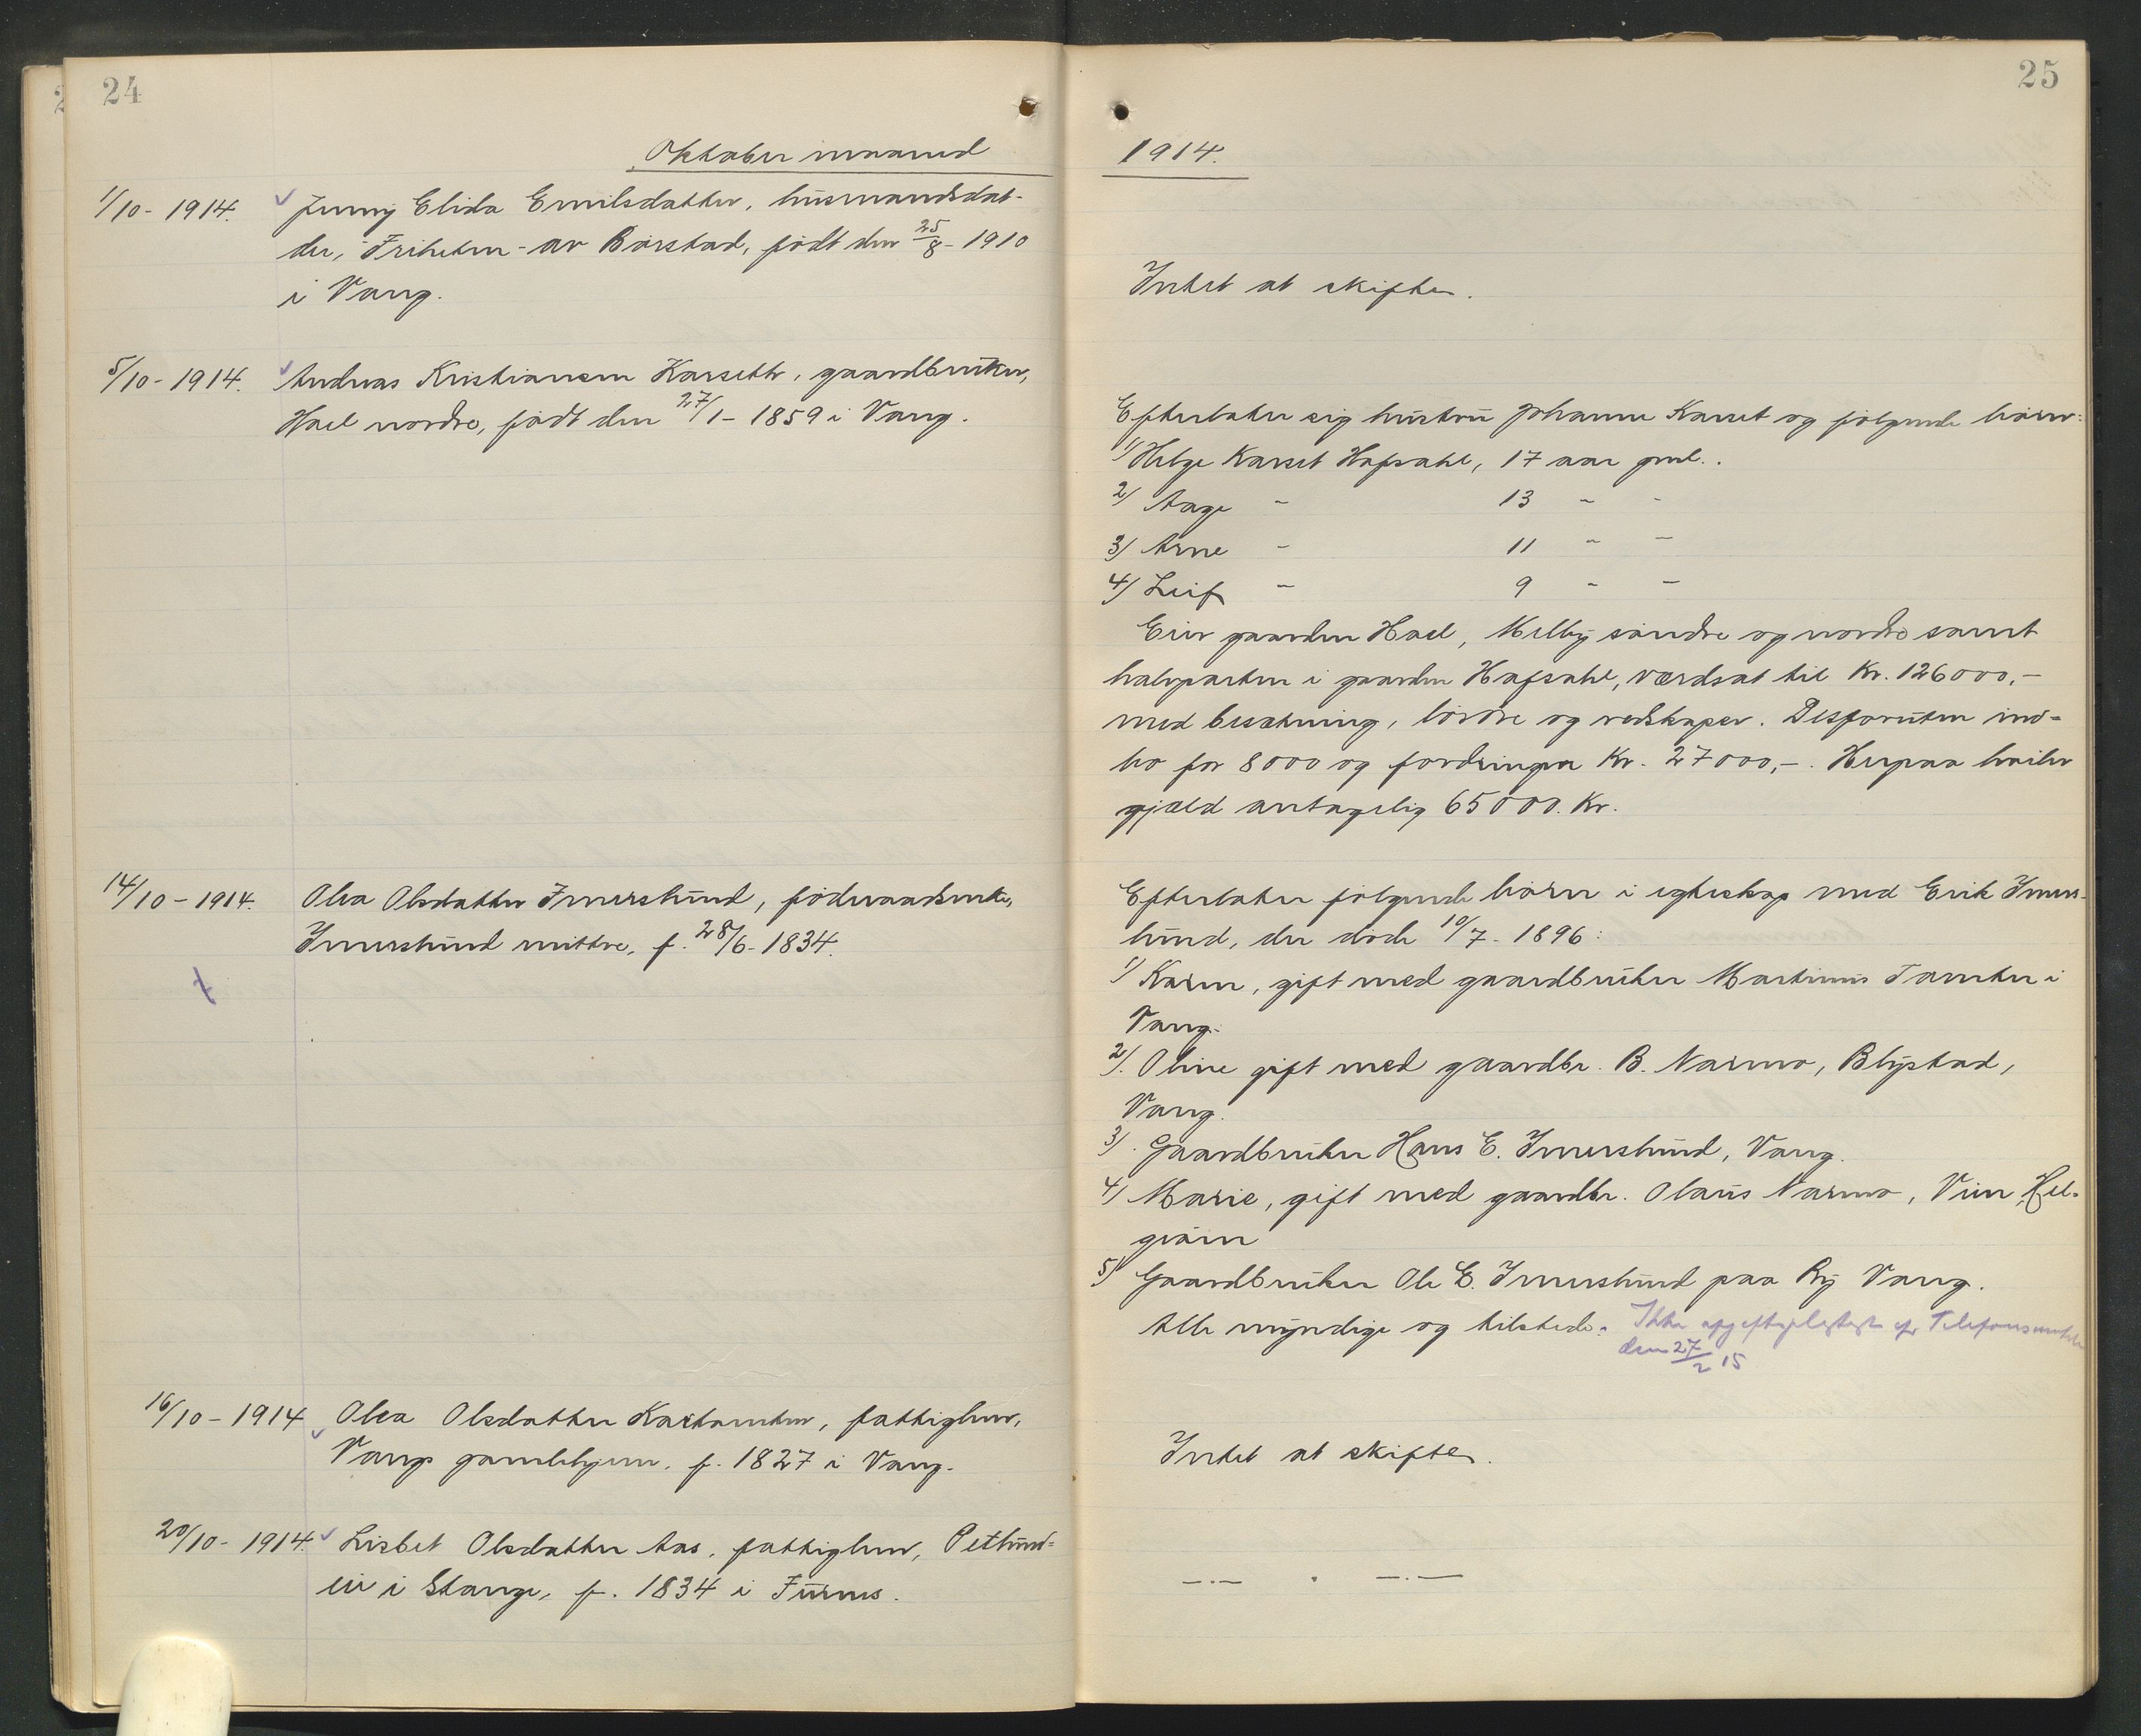 24
Oktober maaned
1/10 - 1914. Jenny Elida Emilsdatter, husmandsdat-
ter, Friheten - av Børstad, født den 25/8 - 1910
i Vang.
5/10 - 1914. Andreas Kristiansen Karseth, gaardbruker,
Hoel nordre, født den 27/1 - 1859 i Vang.
14/10 - 1914. Olea Olsdatter Imerslund, føderaadsenke,
Imerslund mittre, f. 28/6 - 1834.
16/10 - 1914 Olea Olsdatter Kartomten, fattiglem,
Vangs gamlehjem, f. 1827 i Vang.
20/10 - 1914. Lisbet Olsdatter Aas, fattiglem, Petlund-
eie i Stange, f. 1834 i Furnes.
25
1914.
Intet at skifte.
Efterlater sig hustru Johanne Karset og følgende børn:
1/ Helge Karset Hafsahl, 17 aar gml..
2/ Aage - 13 - -
3/ Arne - 11 - -
4/ Leif - 9 - -
Eier gaarden Hoel, Melby søndre og nordre samt
halvparten i gaarden Hafsahl, værdsat til Kr. 126000,-
med besætning, løsøre og redskaper. Desforuten ind-
bo for 8000 og fordringer Kr. 27000,-. Herpaa hviler
gjæld antagelig 65000. Kr.
Efterlater følgende børn i egteskap med Erik Imers-
lund, der døde 10/7 - 1896:
1/ Karen, gift med gaardbruker Martinus Tomter i
Vang.
2/. Oline gift med gaardbr. B. Narmo, Blystad,
Vang.
3/. Gaardbruker Hans E. Imerslund, Vang.
4/ Marie, gift med gaardbr. Olaus Narmo, Vien, Hel-
gøen
5/ Gaardbruker Ole E. Imerslund paa By Vang.
Alle myndige og tilstede. Ikke Telefon
den 27/2 15
Intet at skifte.
—.— . —.—